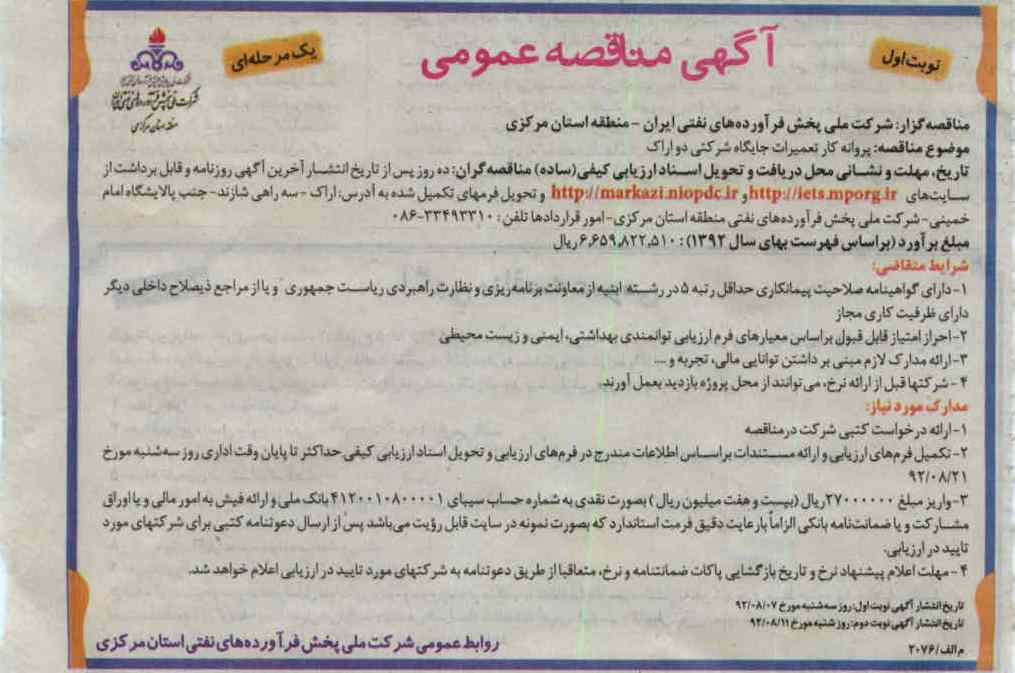 آگهی مناقصه عمومی
نوبت اول
یک مرحله‌ای
شرکت ملی پخش فرآورده‌های نفتی ایران
منطقه استان مرکزی
مناقصه‌گزار: شرکت ملی پخش فرآورده‌های نفتی ایران - منطقه استان مرکزی
موضوع مناقصه: پروانه کار تعمیرات جایگاه شرکتی دو اراک
تاریخ، مهلت و نشانی محل دریافت و تحویل اسناد ارزیابی کیفی (ساده) مناقصه‌گران: ده روز پس از تاریخ انتشار آخرین آگهی روزنامه و قابل برداشت از
سایت‌های http://iets.mporg.ir و http://markazi.niopdc.ir و تحویل فرمهای تکمیل شده به آدرس: اراک - سه راهی شازند - جنب پالایشگاه امام
خمینی - شرکت ملی پخش فرآورده‌های نفتی منطقه استان مرکزی - امور قراردادها تلفن: ۳۳۴۹۳۳۱۰-۰۸۶
مبلغ برآورد (براساس فهرست بهای سال ۱۳۹۲): ۶,۶۵۹,۸۲۲,۵۱۰ ریال
شرایط متقاضی:
۱- دارای گواهینامه صلاحیت پیمانکاری حداقل رتبه ۵ در رشته ابنیه از معاونت برنامه‌ریزی و نظارت راهبردی ریاست جمهوری و یا از مراجع ذیصلاح داخلی دیگر
دارای ظرفیت کاری مجاز
۲- احراز امتیاز قابل قبول براساس معیارهای فرم ارزیابی توانمندی بهداشتی، ایمنی و زیست محیطی
۳- ارائه مدارک لازم مبنی بر داشتن توانایی مالی، تجربه و....
۴- شرکتها قبل از ارائه نرخ، می توانند از محل پروژه بازدید بعمل آورند.
مدارک مورد نیاز:
۱- ارائه درخواست کتبی شرکت در مناقصه
۲- تکمیل فرم‌های ارزیابی و ارائه مستندات براساس اطلاعات مندرج در فرم‌های ارزیابی و تحویل اسناد ارزیابی کیفی حداکثر تا پایان وقت اداری روز سه‌شنبه مورخ
۹۲/۰۸/۲۱
۳- واریز مبلغ ۲۷۰۰۰۰۰۰ ریال (بیست و هفت میلیون ریال) بصورت نقدی به شماره حساب سیبای ۴۱۲۰۰۱۰۸۰۰۰۰۱ بانک ملی و ارائه فیش به امور مالی و یا اوراق
مشارکت و یا ضمانت‌نامه بانکی الزاماً با رعایت دقیق فرمت استاندارد که بصورت نمونه در سایت قابل رؤیت می‌باشد پس از ارسال دعوتنامه کتبی برای شرکتهای مورد
تایید در ارزیابی.
۴- مهلت اعلام پیشنهاد نرخ و تاریخ بازگشایی پاکات ضمانتنامه و نرخ، متعاقبا از طریق دعوتنامه به شرکتهای مورد تایید در ارزیابی اعلام خواهد شد.
تاریخ انتشار آگهی نوبت اول: روز سه‌شنبه مورخ ۹۲/۰۸/۰۷
تاریخ انتشار آگهی نوبت دوم: روز شنبه مورخ ۹۲/۰۸/۱۱
م الف/۲۰۷۶
روابط عمومی شرکت ملی پخش فرآورده‌های نفتی استان مرکزی